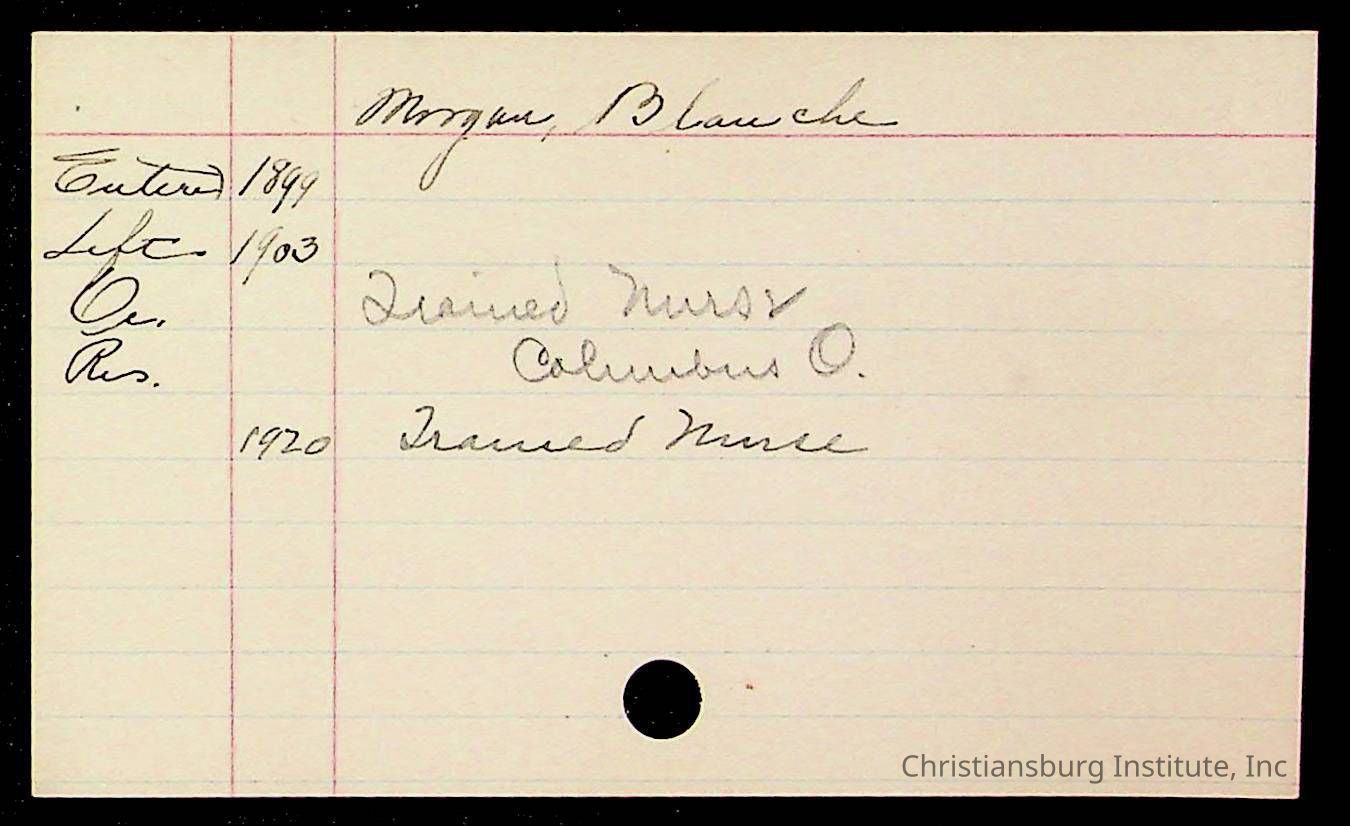 Morgan, Blanche
Entered 1899
Left 1903
Oc. Trained Nurse
Res. Columbus O.
1920 Trained Nurse
Christiansburg Institute, Inc